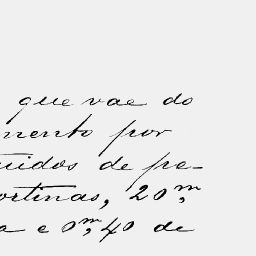 que vae do
mento por
tuidos de pe-
ortinas, 20,m
a e 0,m40 de